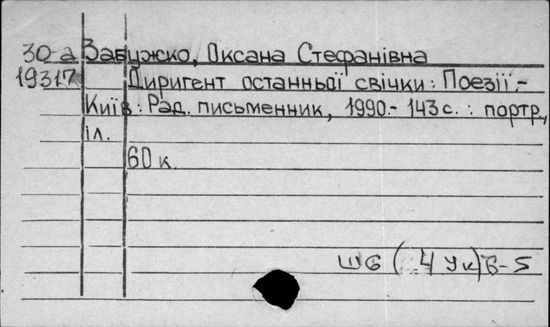 30-а Забужко, Оксана Стефанівна
19317 Диригент останньої свічки: Поезії.-
Київ: Рад. письменник, 1990.- 143 с. : портр.,
іл.
60 к.
Ш6 ( 4 Ук) 6-5